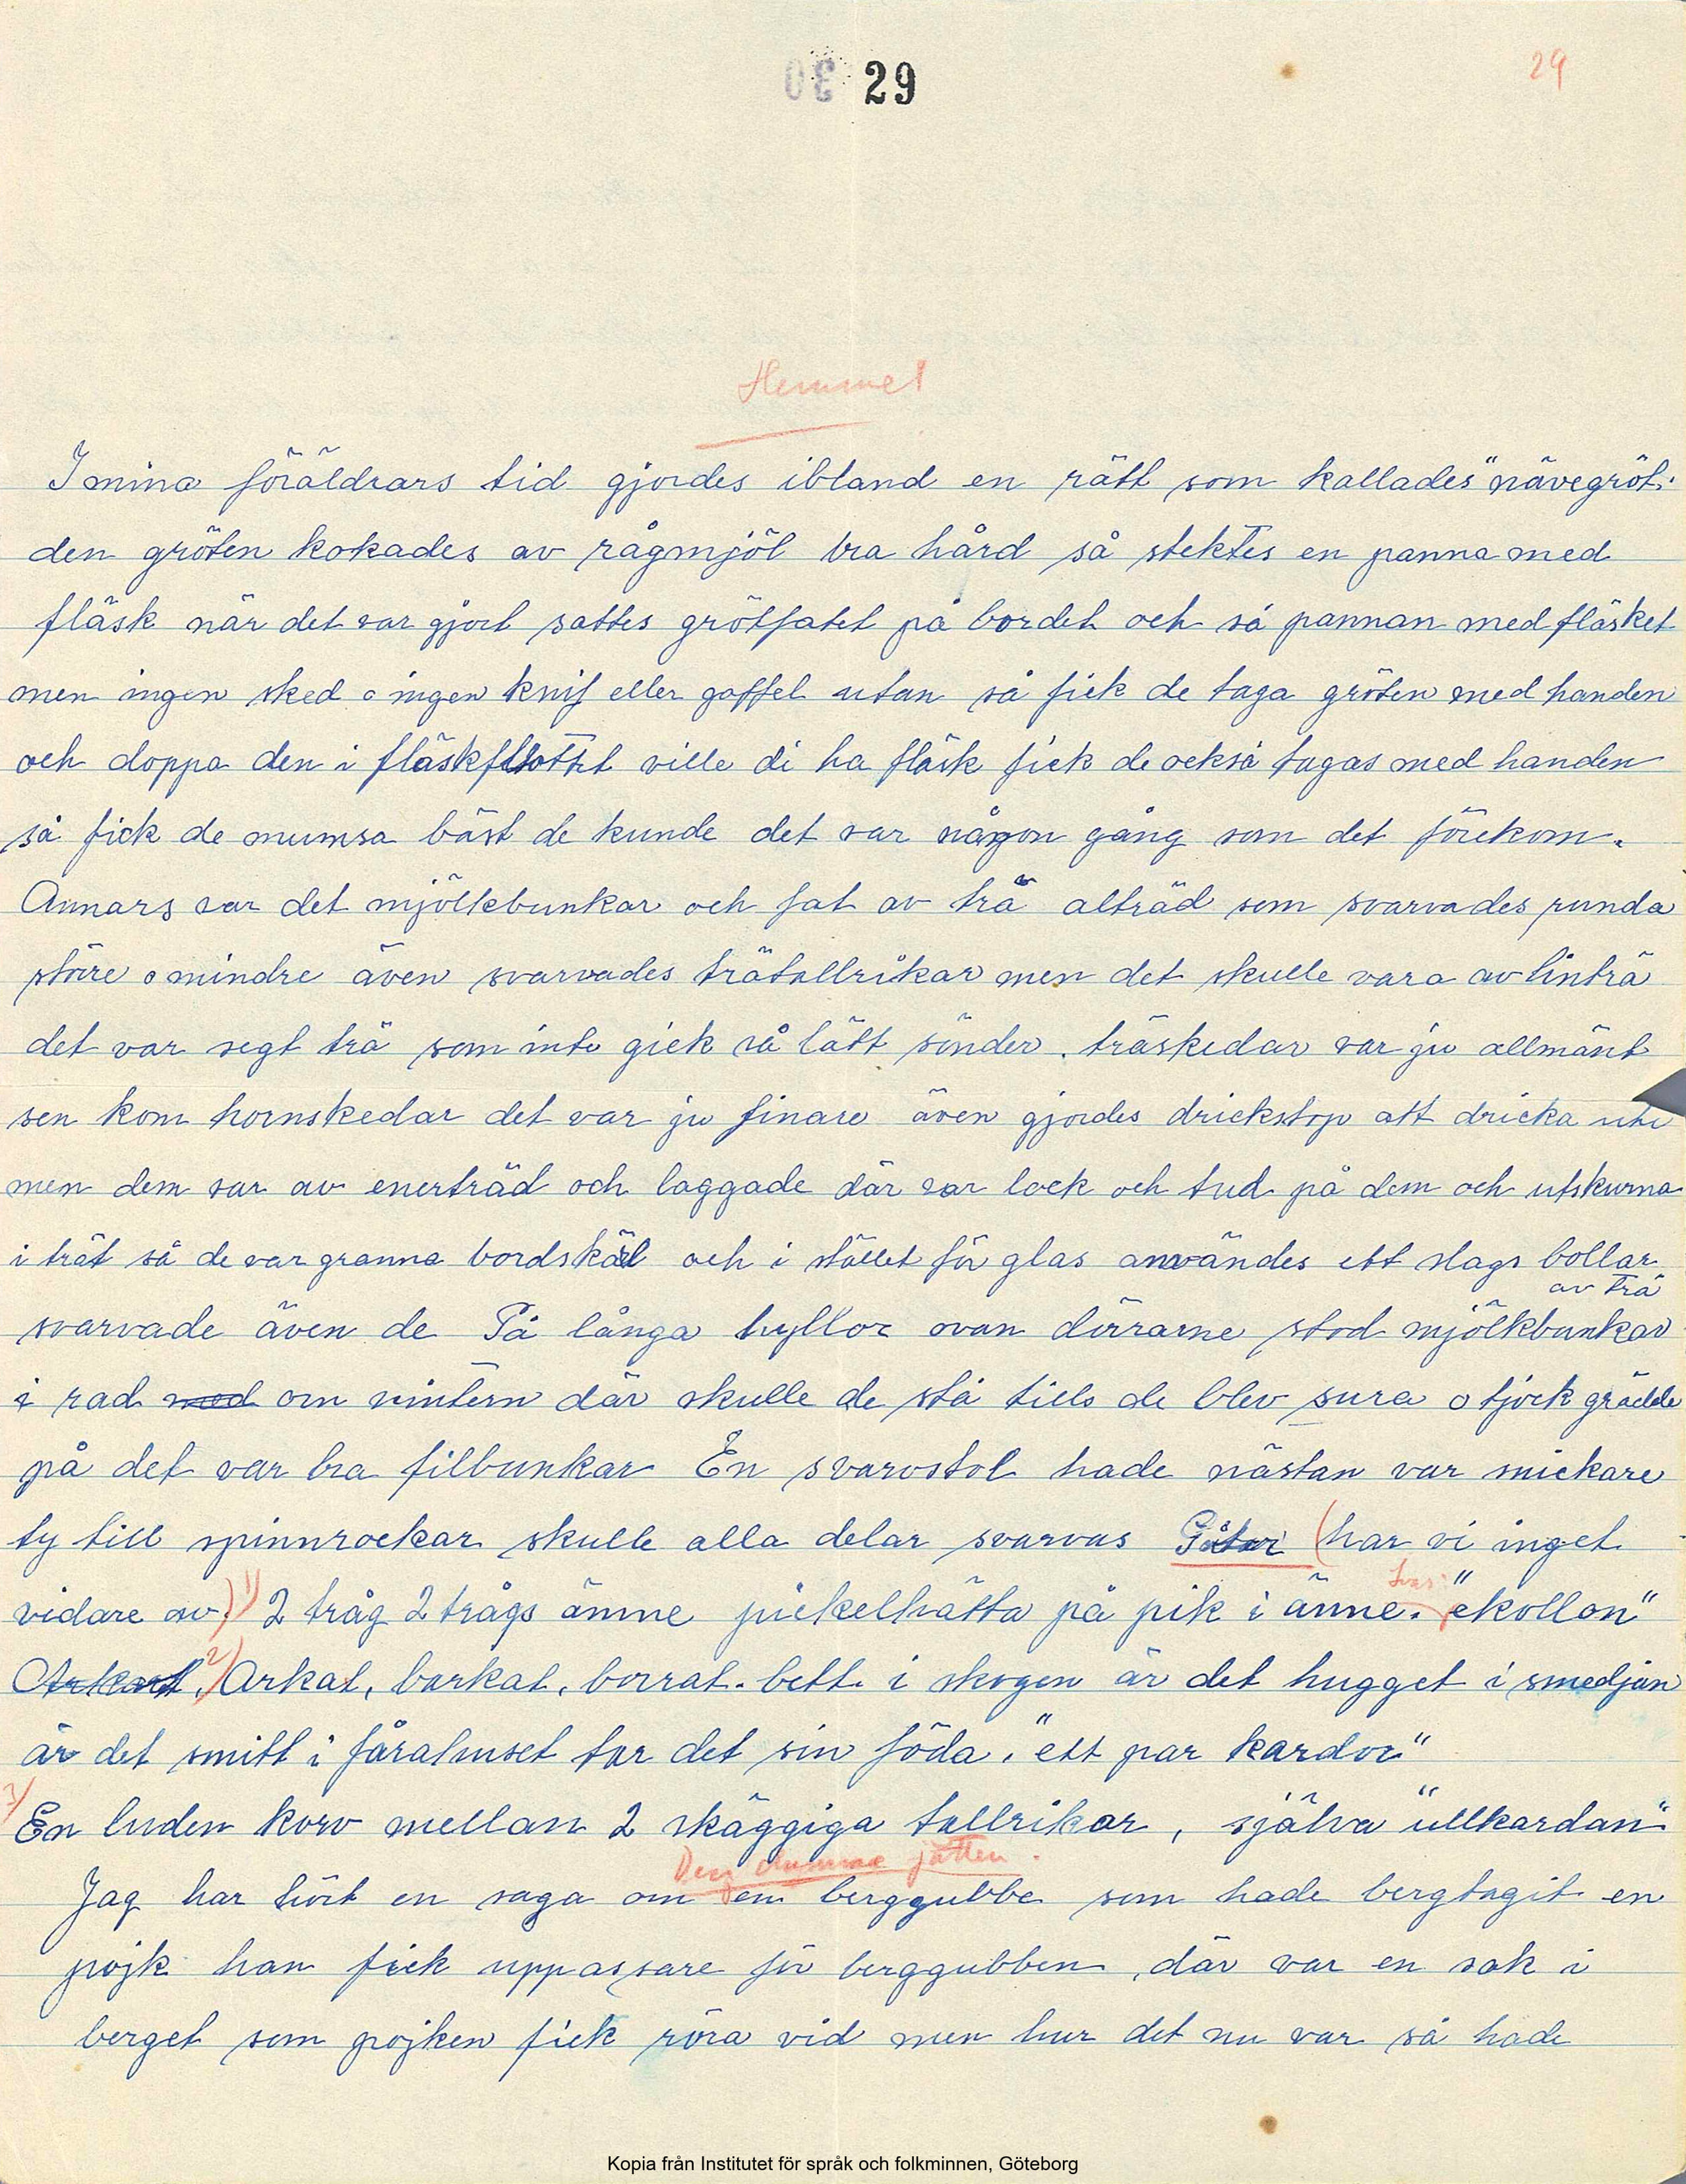 30 29
29
Hemmet
I mina föräldrars tid gjordes ibland en rätt som kallades "nävegröt".
den gröten kokades av rågmjöl bra hård så stektes en panna med
fläsk när det var gjort sattes grötfatet på bordet och så pannan med fläsket
men ingen sked o ingen knif eller gaffel utan så fick de taga gröten med handen
och doppa den i fläskflottet ville di ha fläsk fick de också tagas med handen
så fick de mumsa bäst de kunde det var någon gång som det förekom.
Annars var det mjölkbunkar och fat av trä alträd som svarvades runda
störe o mindre även svarvades trätallrikar men det skulle vara av linträ
det var segt trä som inte gick så lätt sönder. träskedar var ju allmänt
sen kom hornskedar det var ju finare även gjordes drickstop att dricka uti
men dem var av enerträd och laggade där var lock och tud på dem och utskurna
i trät så de var granna bordskärl och i stället för glas användes ett slags bollar
av trä
svarvade även de På långa hyllor ovan dörrarne stod mjölkbunkar
i rad med om vintern där skulle de stå tills de blev sura o tjock grädde
på det var bra filbunkar En svarvstol hade nästan var snickare
ty till spinnrockar skulle alla delar svarvas Gåtor (har vi inget
vidare av.) 1) 2 tråg 2 trågs ämne pickelhätta på pik i änne. svar: "ekollon"
Arkart. 2) Arkat, barkat, borrat. bett. i skogen är det hugget i smedjan
är det smitt i fårahuset tar det sin föda. "ett par kardor"
3) En luden korv mellan 2 skäggiga tallrikar, själva "ullkardan"
Den dumme jätten.
Jag har hört en saga om en berggubbe som hade bergtagit en
pojk han fick uppassare för berggubben, där var en sak i
berget som pojken fick röra vid men hur det nu var så hade
Kopia från Institutet för språk och folkminnen, Göteborg